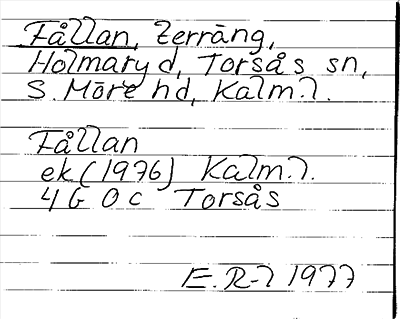 Fållan, terräng,
Holmaryd, Torsås sn,
S. Möre hd, Kalm.l.
Fållan
ek (1976) Kalm.l.
4G 0c Torsås
E.R-l 1977